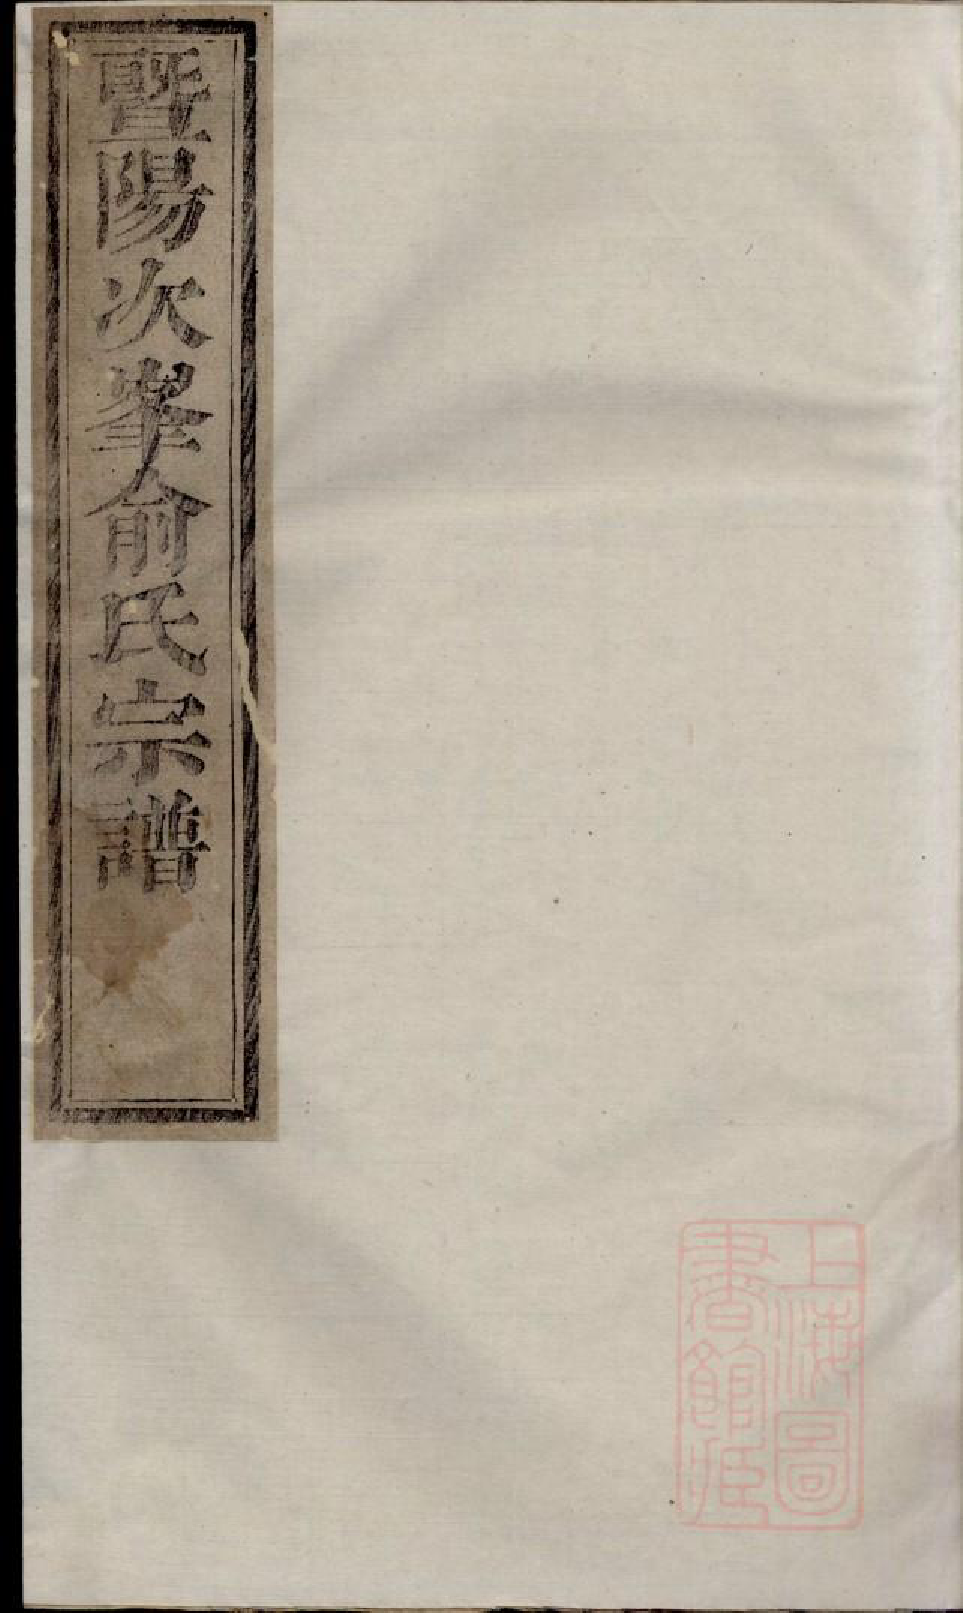 暨陽次峯俞氏宗譜
上海圖
書館藏